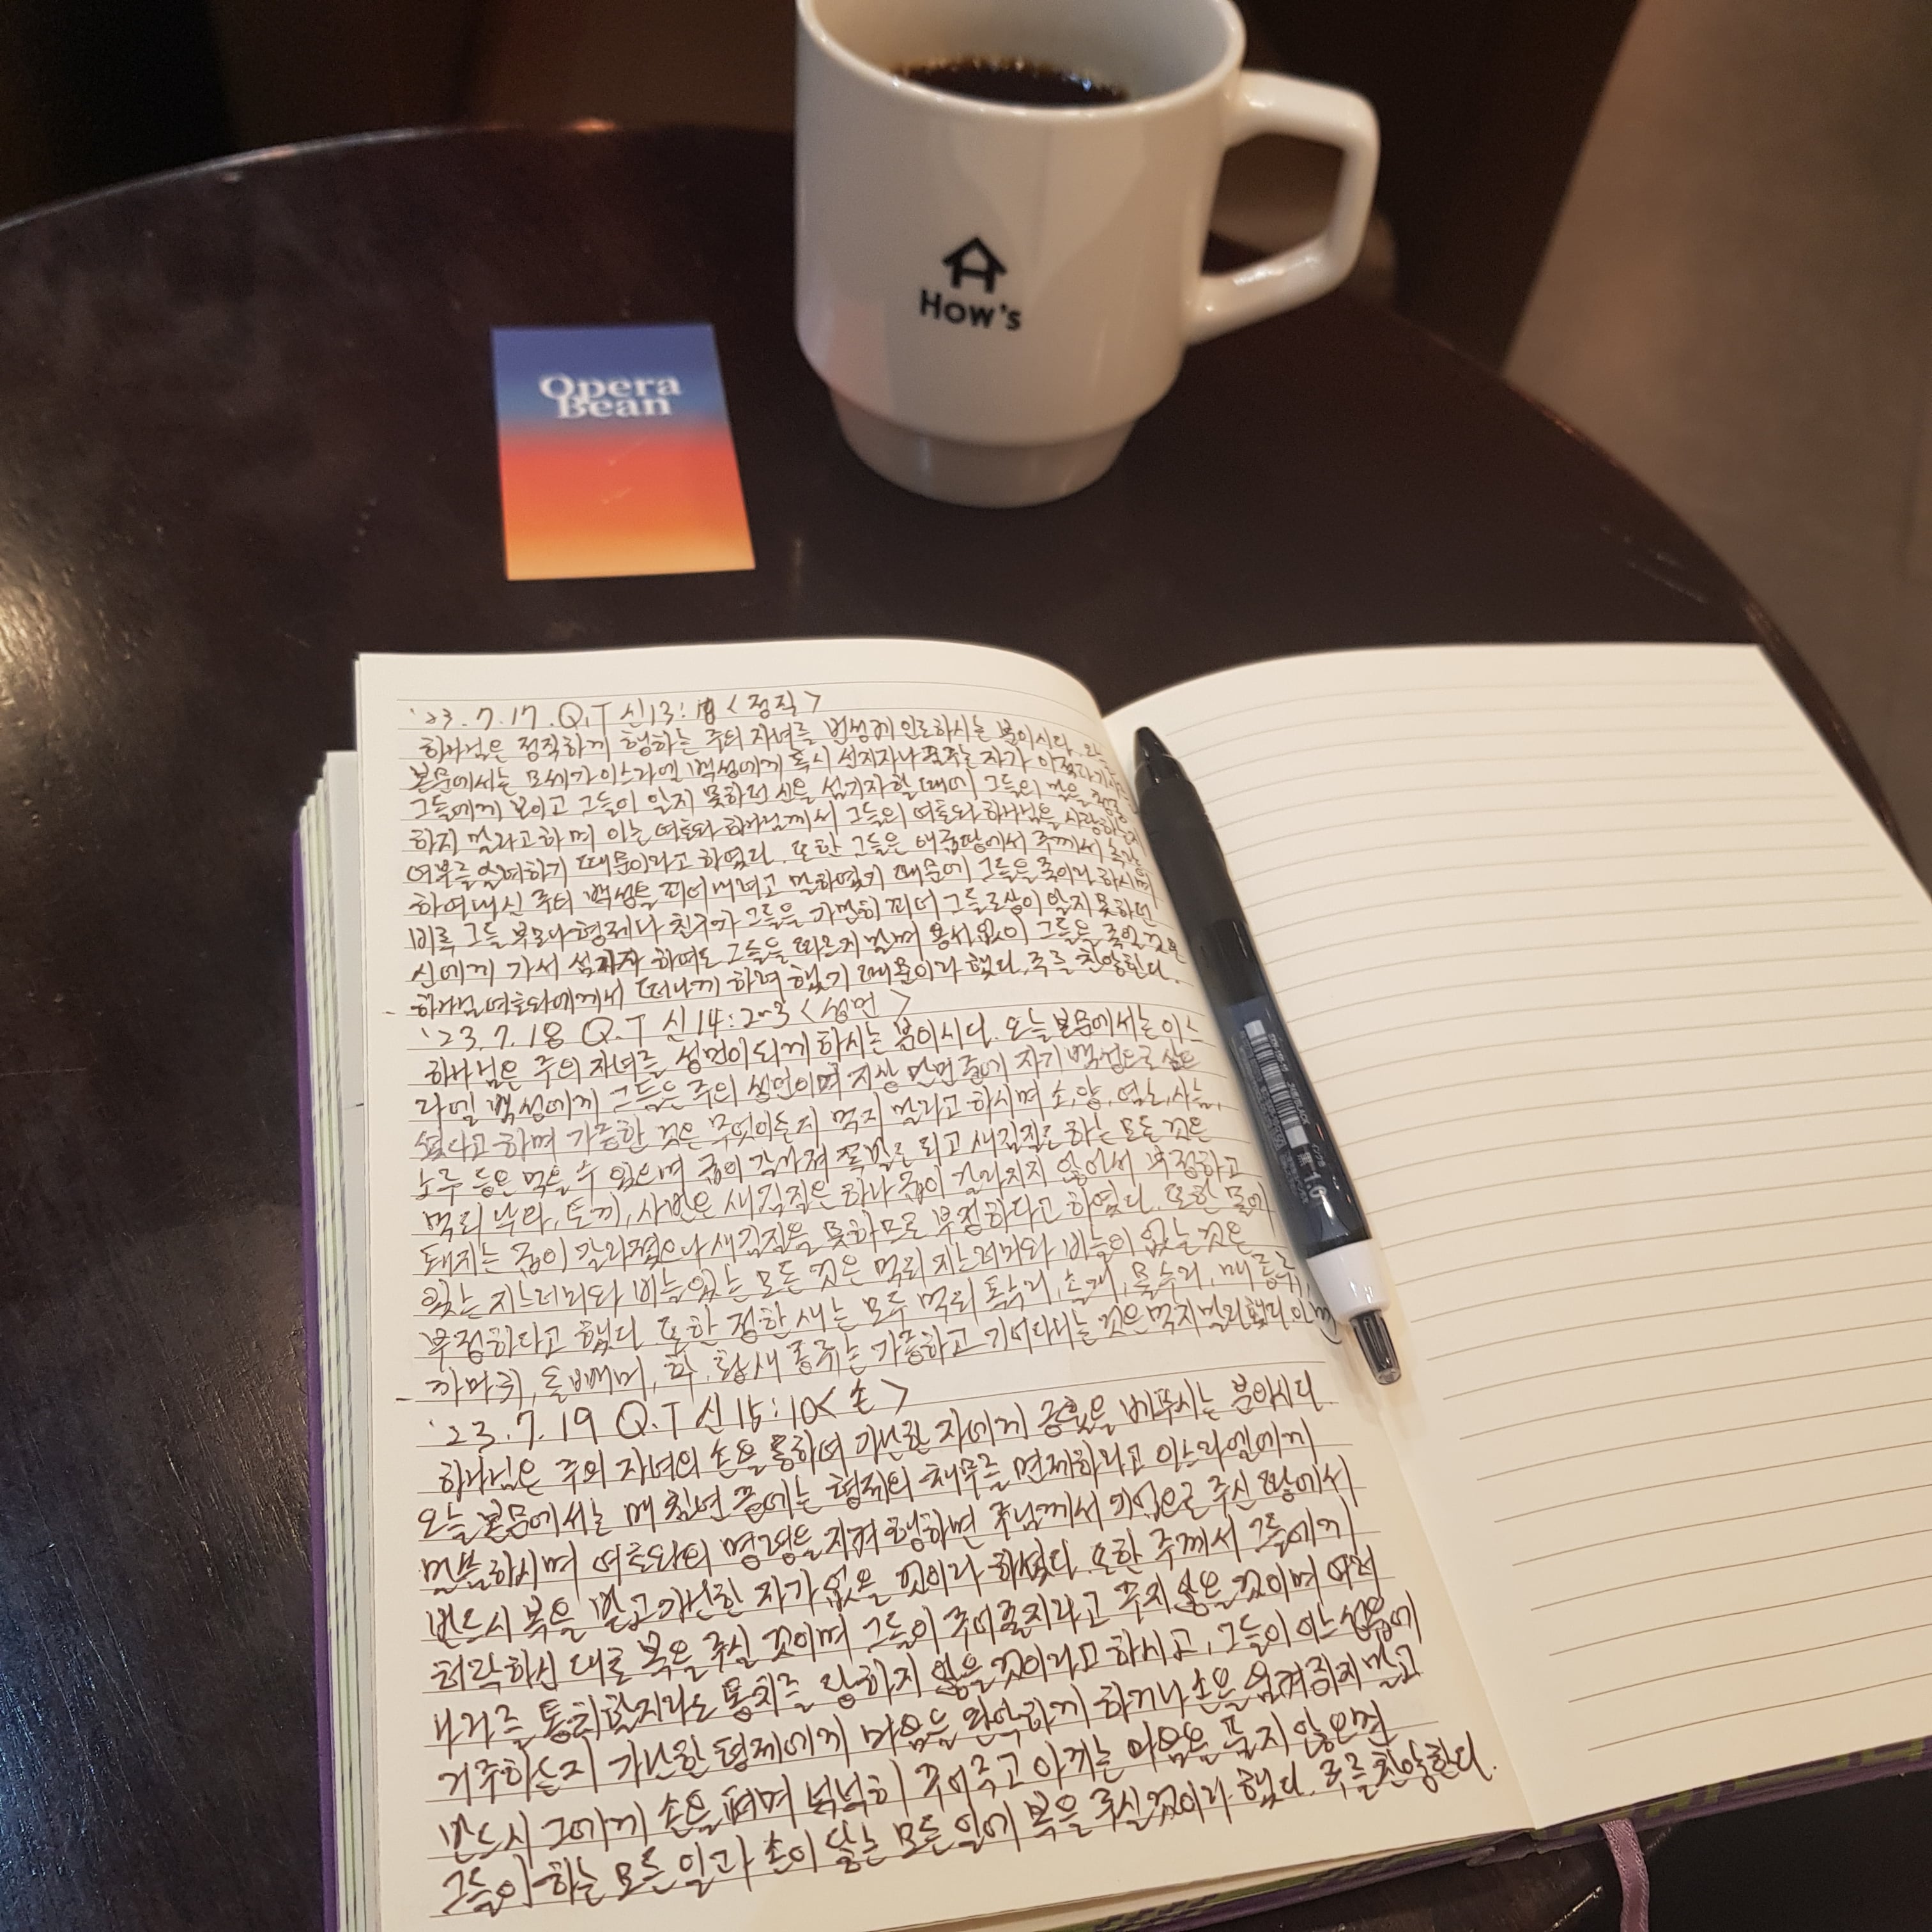 How's
Opera
Bean
'23.7.17. Q.T 신13: <정직>
하나님은 정직하게 행하는 주의 자녀를 번성케 인도하시는 분이시다.
본문에서는 모세가 이스라엘 백성에게 혹시 선지자나 꿈꾸는 자가
그들에게 보이고 그들이 알지 못하던 신을 섬기자 할 때에 그들의 말을
하지 말라고 하며 이는 여호와 하나님께서 그들의 여호와 하나님을 사랑하는지
여부를 하기 때문이라고 하였다. 또한 그들은 애굽땅에서 주께서
하여내신 주의 백성을 꾀어내려고 말하였기 때문에 그들을 죽이라 하시며
비록 그들 부모나 형제나 친구가 그들을 가만히 꾀어 알지 못하던
신에게 가서 섬기자 하여도 그들을 따르지 말며 용서없이 그들을 죽일 것은
하나님 여호와에게서 떠나게 하려 했기 때문이라 했다. 주를 찬양한다.
'23.7.18 Q.T 신14:2~3 <성민>
하나님은 주의 자녀를 성민이 되게 하시는 분이시다. 오늘 본문에서는 이스
라엘 백성에게 그들은 주의 성민이며 지상 만민 중에 자기 백성으로 삼으
셨다고 하며 가증한 것은 무엇이든지 먹지 말라고 하시며 소, 양, 염소, 사슴,
노루 등은 먹을 수 있으며 굽이 갈라져 쪽발도 되고 새김질도 하는 모든 것은
먹되 낙타, 토끼, 사반은 새김질은 하나 굽이 갈라지지 않아서 부정하고
돼지는 굽이 갈라졌으나 새김질을 못하므로 부정하다고 하였다. 또한 물에
있는 지느러미와 비늘있는 모든 것은 먹되 지느러미와 비늘이 없는 것은
부정하다고 했다. 또한 정한 새는 모두 먹되 독수리, 솔개, 물수리, 매 종류,
까마귀, 올빼미, 학, 황새 종류는 가증하고 기어다니는 것은 먹지 말라 했다
'23.7.19 Q.T 신15:10 <손>
하나님은 주의 자녀의 손을 통하여 가난한 자에게 긍휼을 베푸시는 분이시다.
오늘 본문에서는 매 칠년 끝에는 형제의 채무를 면제하라고 이스라엘에게
말씀하시며 여호와의 명령을 지켜 행하면 주님께서 기업으로 주신 땅에서
반드시 복을 받고 가난한 자가 없을 것이라 하였다. 또한 주께서 그들에게
허락하신 대로 복을 주실 것이며 그들이 꾸어줄지라도 꾸지 않을 것이며 여러
나라를 통치할지라도 통치를 당하지 않을 것이라고 하시고, 그들이 어느 성읍에
거주하든지 가난한 형제에게 마음을 완악하게 하거나 손을 움켜쥐지 말고
반드시 그에게 손을 펴며 넉넉히 꾸어주고 아끼는 마음을 품지 않으면
그들이 하는 모든 일과 손이 닿는 모든 일에 복을 주실 것이라 했다. 주를 찬양한다.
1.0